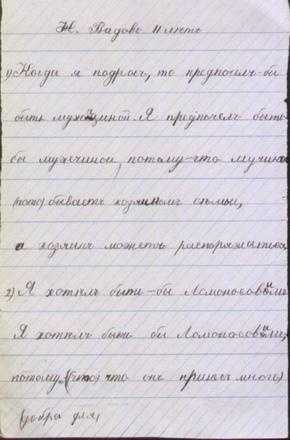 Н. Вадовъ 11 летъ
1) Когда я подрост, то предпочелъ-бы
быть мужчиной. Я предпочелъ быть
бы мужчиной, потому-что мущина
(пото) бываетъ хозяиномъ семьи,
а хозяинъ можетъ распоряжатися
2) Я хотелъ быть-бы Ломоносовымъ
Я хотелъ быть бы Ломоносовымъ,
потому, (что) что онъ принесъ много
(добра для)